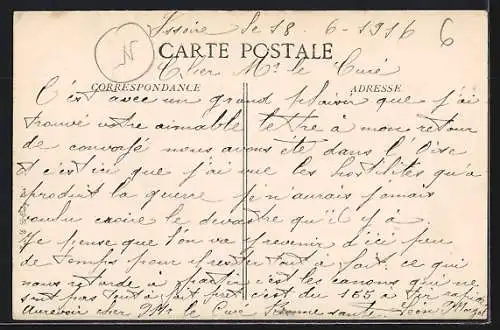 Issoire le 18 6-1916
6
N
CARTE POSTALE
Cher Mr le Curé
CORRESPONDANCE
ADRESSE
C'est avec un grand plaisir que j'ai
trouvé votre aimable lettre à mon retour
de nous avons été dans l'Oise
et c'est ici que j'ai vue les hostilités qu'a
produit la guerre je n'aurais jamais
voulu croire le devastre qu'il y à.
Je pense que l'on va y revenir d'ici peu
de temps pour y rester tout à fait. ce qui
nous retarde à partir c'est les canons qui ne
sont pas tout à fait prêt c'est du 155 à tir rapide
Aurevoir cher Mr le Curé Bonne santé Leon